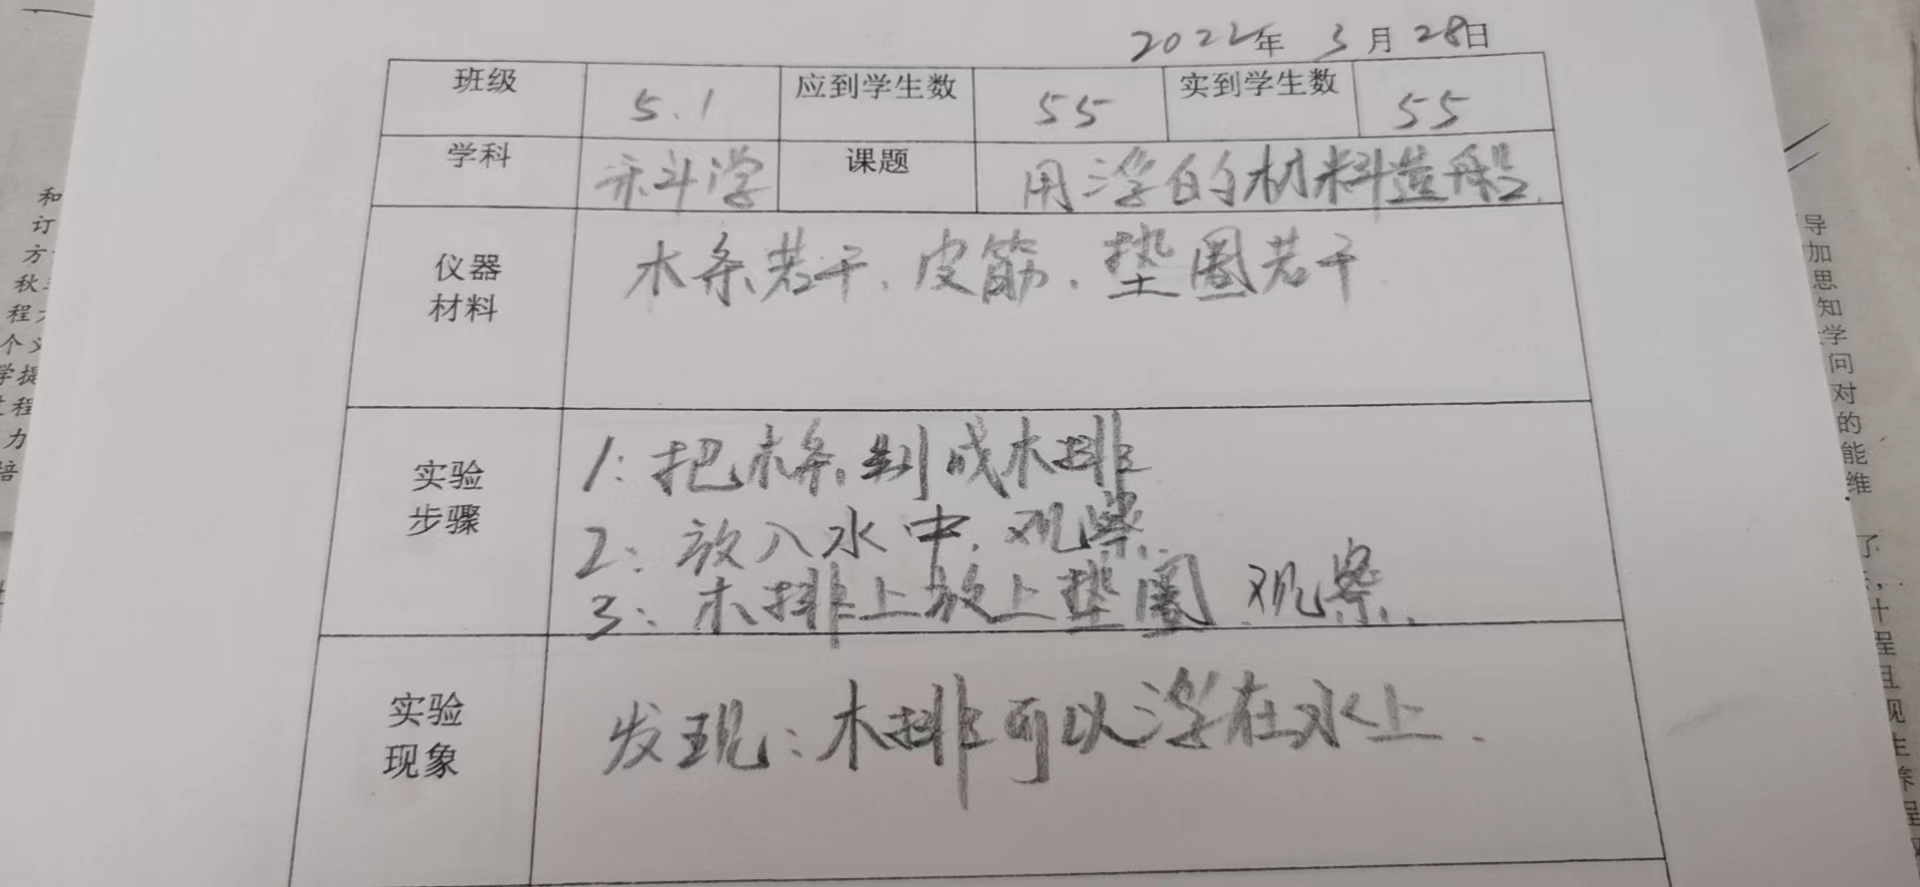 2022年 3月 28日
班级 5.1 应到学生数 55 实到学生数 55
学科 科学 课题 用浮的材料造船.
仪器材料 木条若干、皮筋、垫圈若干
实验步骤 1：把木条制成木排
2：放入水中，观察.
3：木排上放上垫圈、观察.
实验现象 发现：木排可以浮在水上.
和
订
方
秋
程
个
学提
程
力
培
导
加
思
知
学
问
对
的
能
维
了
程
且
现
生
养
程